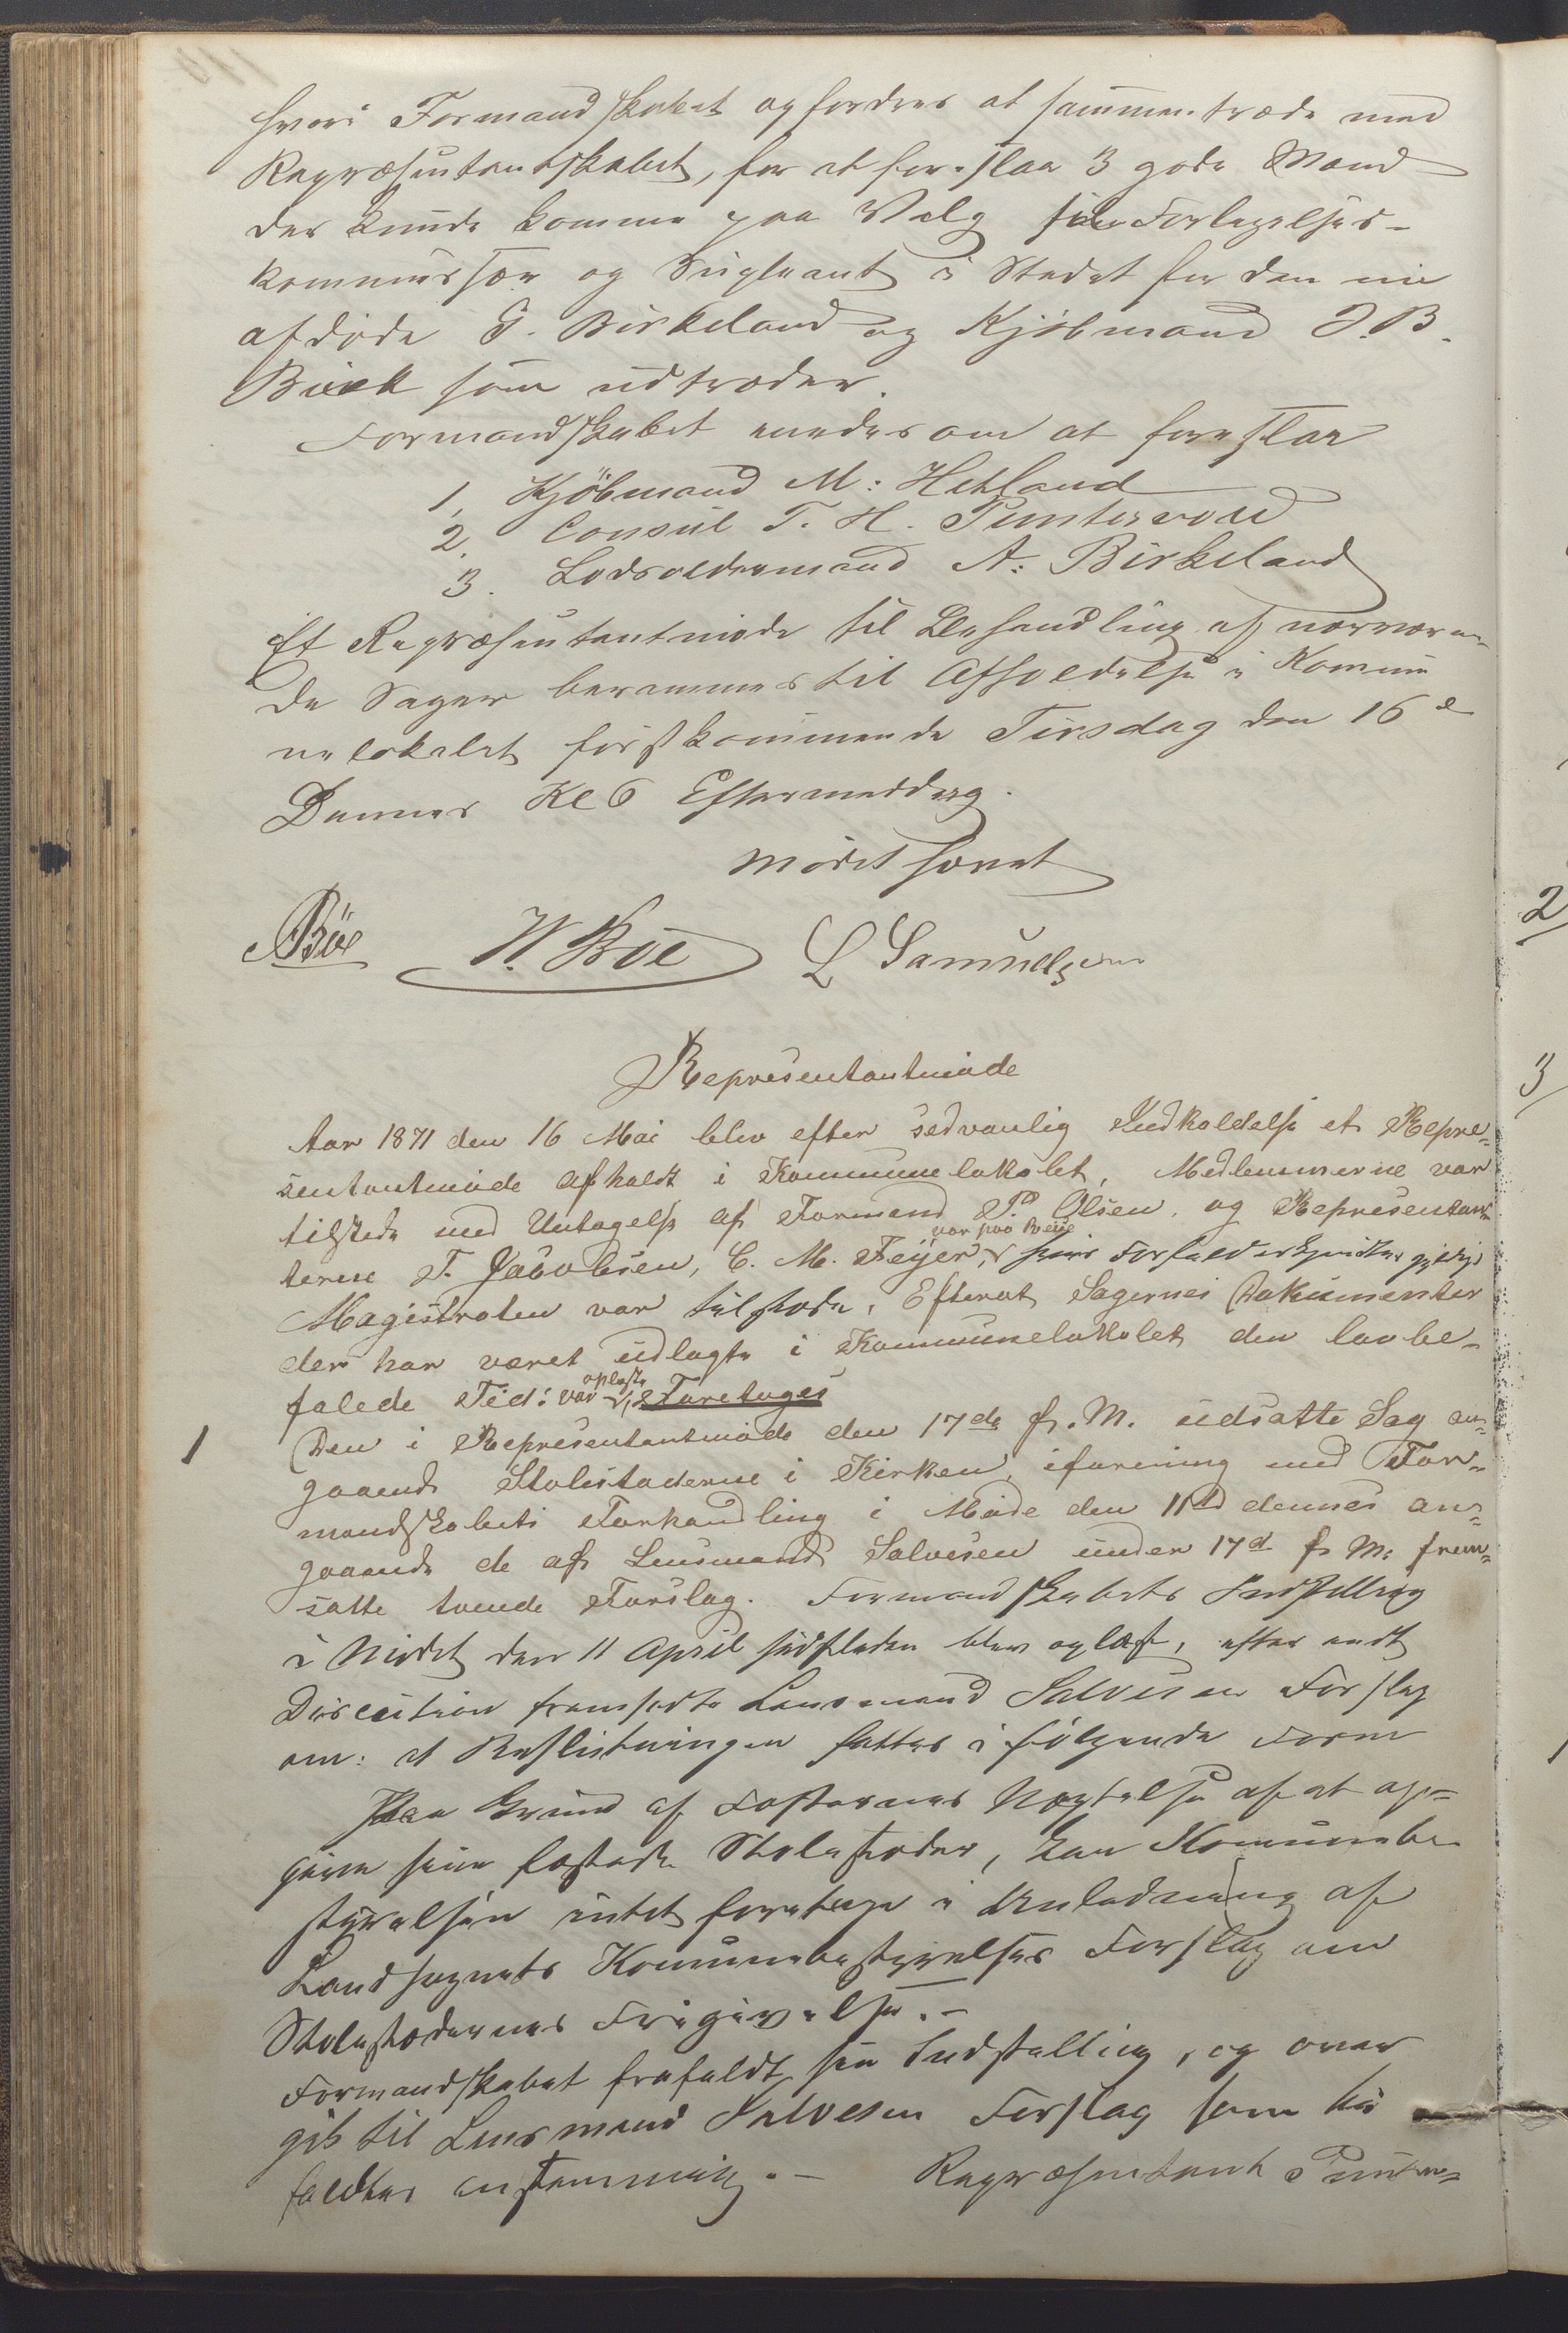 hvori Formandskabet opfordres at sammentræde med
Repræsentantskabet, for at foreslaa 3 gode Mænd
der kunde komme paa Valg til Forligelses-
kommissær og Supleant i Stedet for den nu
afdøde G. Birkeland og Kjøbmand J. B.
Böck som udtræder.
Formandskabet enedes om at foreslaa
1, Kjöbmand M: Hetland
2. Consul T. H. Puntervold
3. Lodsoldermand A: Birkeland
Et Repræsentantmøde til Behandling af nærværen-
de Sager berammes til Afholdelse i Kommu
nelokalet førstkommende Tirsdag den 16de
Dennes Kl 6 Eftermeddag.
Mødet hævet
Böe W. Böe L Samuelsen
Representantmöde
Aar 1871 den 16 Mai blev efter sedvanlig Indkaldelse et Repre-
sentantmöde afholdt i Kommunelokalet, Medlemmerne var
tilstede med Untagelse af Formand P. Olsen, og Representan-
var paa Reise
terne T. Jacobsen, C. M. Feyer, hvis Forfald erkjendtes gyldigt
Magistraten var tilstede, Efterat Sagernes Dokumenter
der har været udlagte i Kommunelokalet den lovbe-
oplæste
falede Tid: var, Foretoges
1 Den i Representantmöde den 17de f. M. udsatte Sag an-
gaaende Stolestaderne i Kirken, iforening med For-
mandskabets Forhandling i Möde den 11te dennes an-
gaaende de af Lensmand Salvesen under 17de f. M. frem-
satte tvende Forslag. Formandskabets Indstilling
i Mødet den 11 April sidstleden blev oplæst, efter endt
Discution fremsatte Lensmand Salvesen Forslag
om: at Beslutningen fattes i følgende Form
Paa Grund af Fæsternes Nægtelse af at op-
give sine fæstede Stolestader, kan Kommunebe-
styrelsen intet foretage i Anledning af
Landsognets Kommunebestyrelses Forslag om
Stolestadernes Frigivelse.-
Formandskabet frafaldt sin Indstilling, og over
gik til Lensmand Salvesen Forslag som bi
faldtes enstemmig.- Repræsentant Punter-